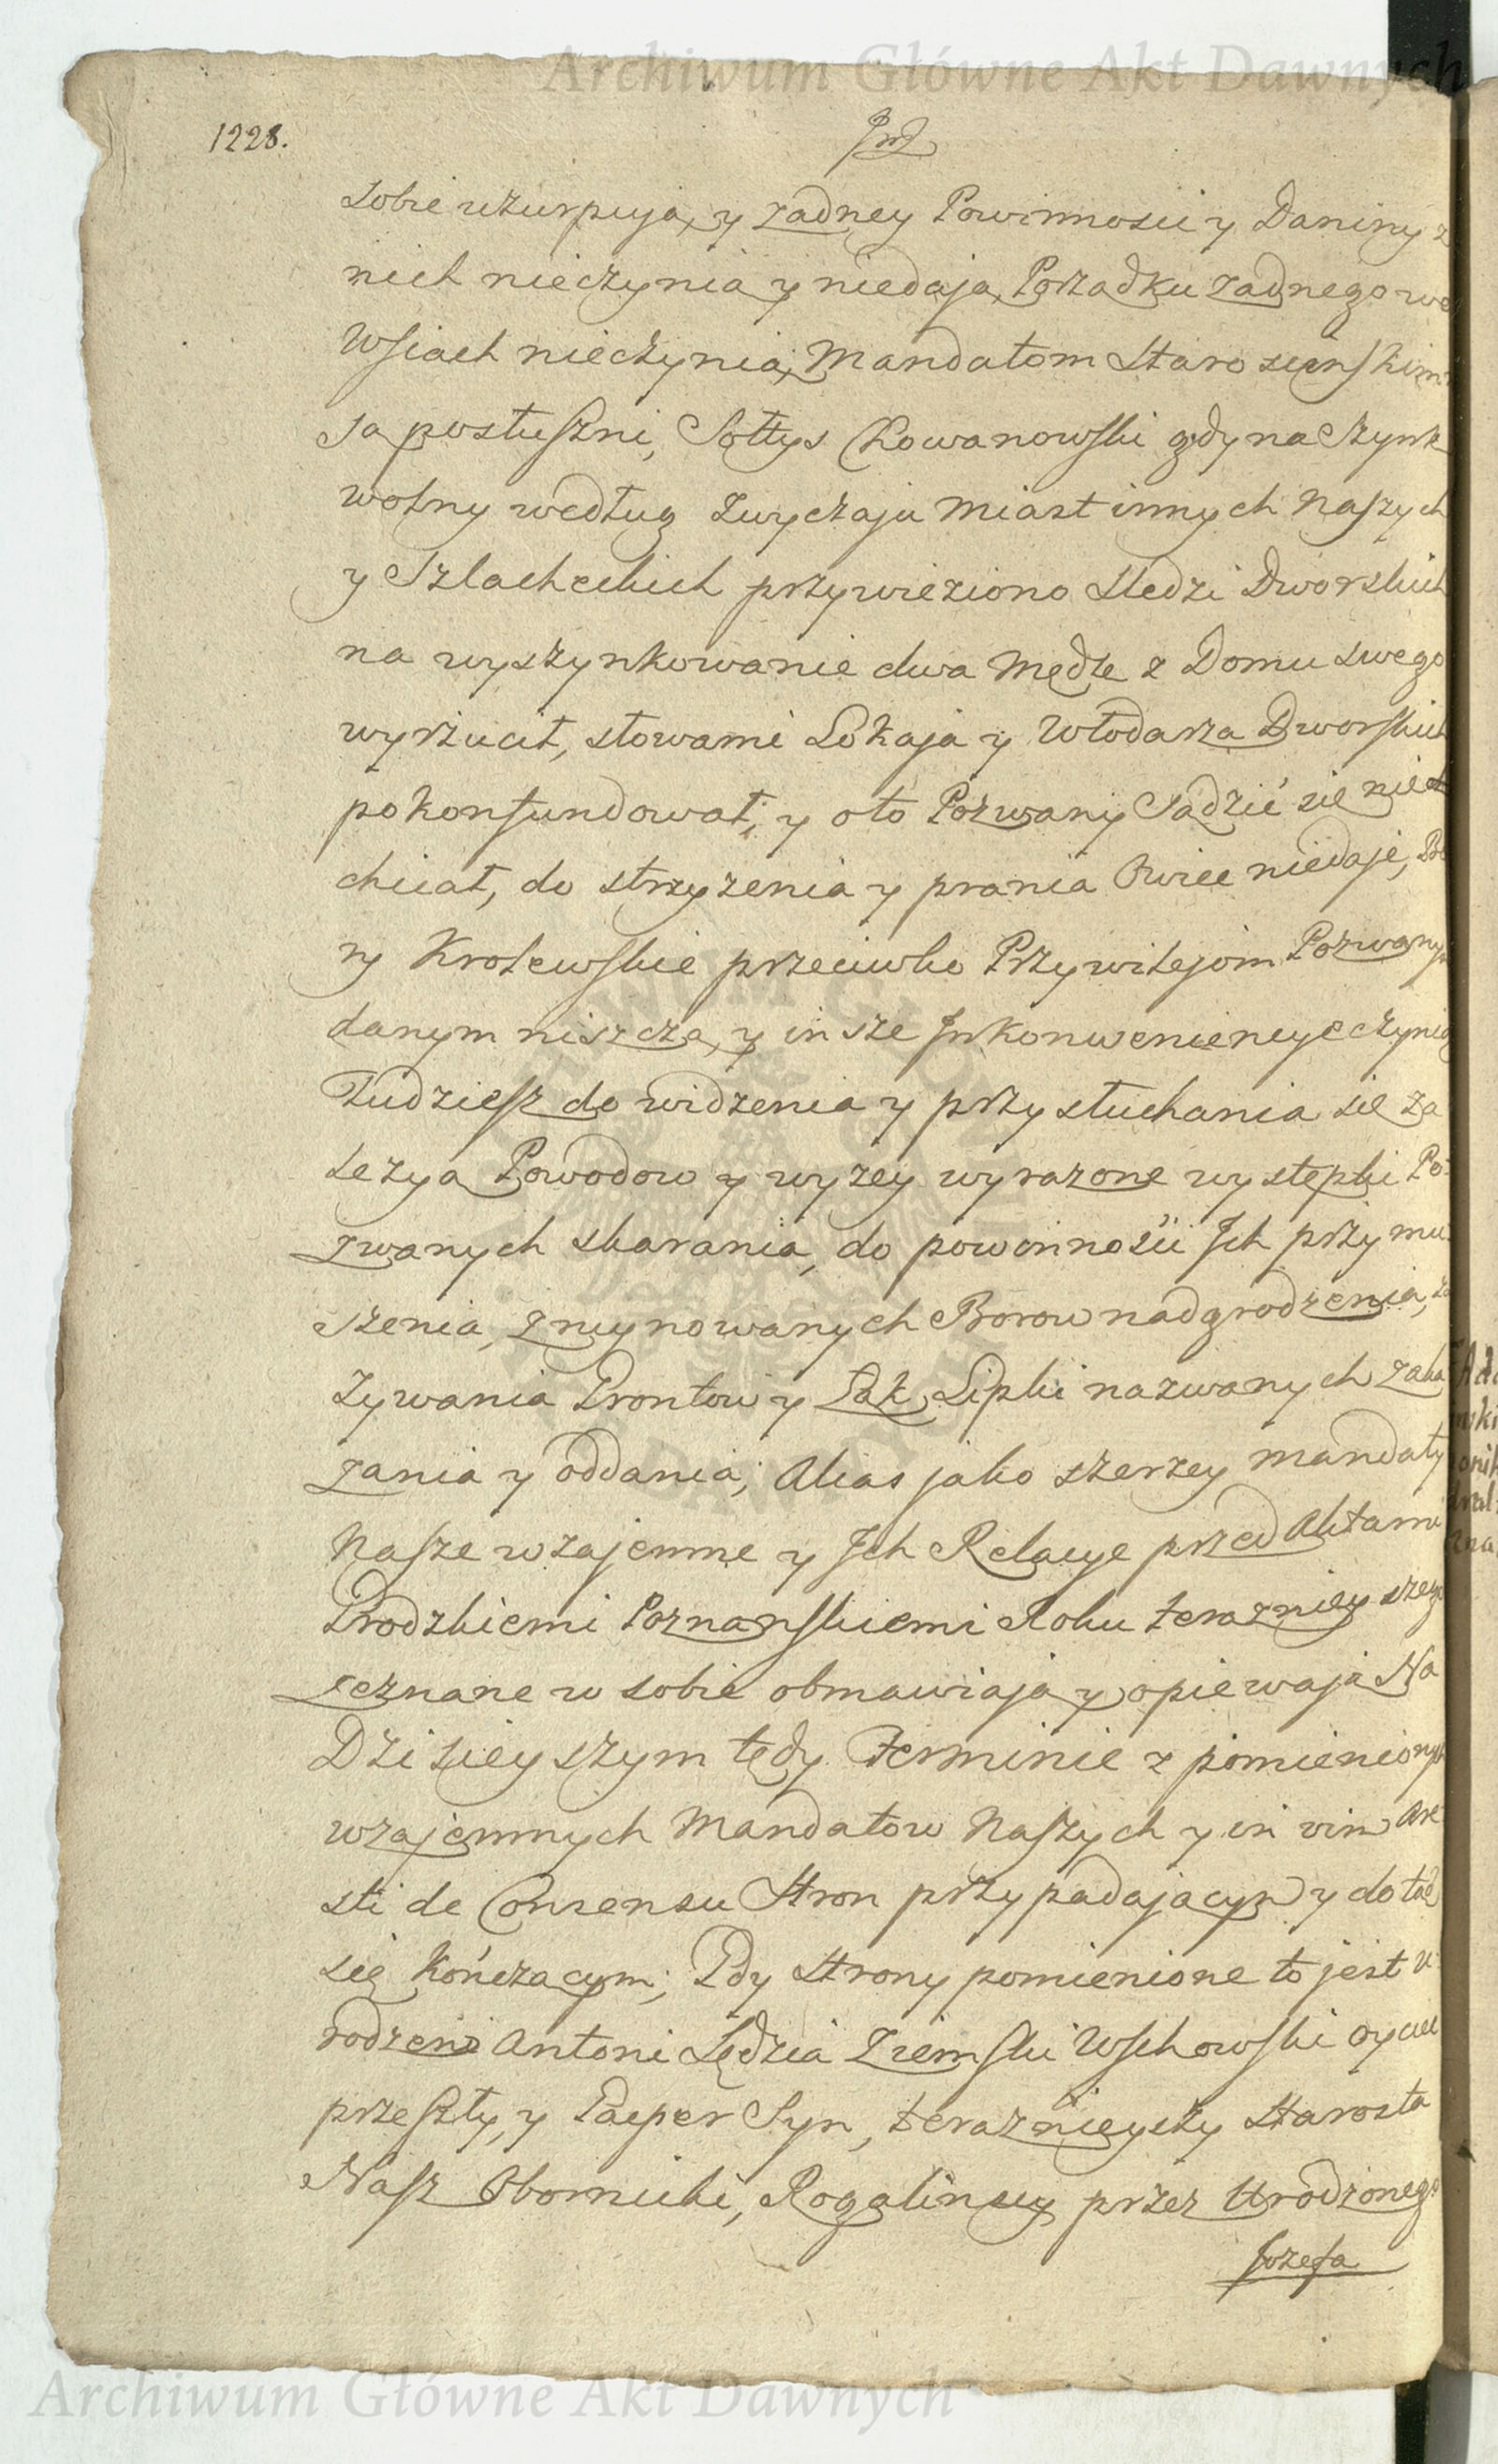 Archiwum Główne Akt Dawnych
1228.
sobie uzurpują, y żadney Powinnosci y Daniny z
nich nieczynią y niedaią, Porządku żadnego we
Wsiach nieczynią, Mandatom Starosciński̇m
są posłuszni, Sołtys Kowanowski gdy na Szynk
wolny według zwyczaju Miast innych Naszych
y Szlacheckich przywieziono Sledzi Dworskich
na wyszynkowanie dwa Mędle z Domu swego
wyrzucił, słowami Lokaja y Włodarza Dworskich
pokonfundował; y oto Pozwany Sądzić się nie
chciał, do strzyżenia y prania Owiec niedaje, Bo
ry Krolewskie przeciwko Przywilejom Pozwanym
danym niszczą, y insze Inkonweniencye czynią
Tudziesz do widzenia y przysłuchania się za
leżya Powodow y wyżey wyrażone występki Po:
zwanych skarania, do powinnosci Ich przymu:
szenia, zruynowanych Borow nadgrodzenia, za
żywania Grontow y Łąk Lipki nazwanych zaka
zania y oddania; Alias jako szerzey mandaty
Nasze wzajemne y Ich Relacye przed Aktami
Grodzkiemi Poznanskiemi Roku teraznieyszego
zeznane w sobie obmawiaią y opiewają Na
Dzisieyszym tedy Terminie z pomienionych
wzajemnych Mandatow Naszych y in vim Are
sti de Consensu Stron przypadającym y dotąd
się kończącym; Gdy Strony pomienione to jest U
rodzeni Antoni Sędzia Ziemski Wschowski Oyciec
przeszły, y Kacper Syn, teraznieyszy Starosta
Nasz Obornicki, Rogalinscy przez Urodzonego
Jozefa
Archiwum Główne Akt Dawnych